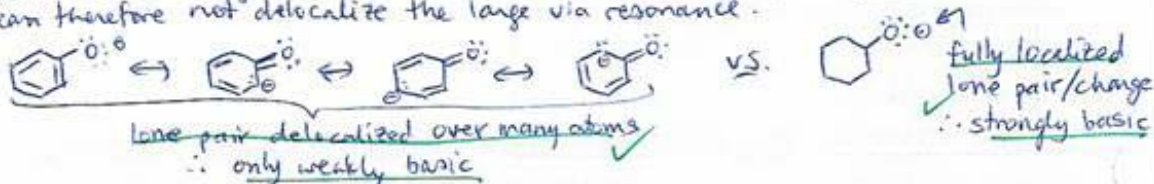 can therefore not delocalize the large via resonance.
:Ö:⊖ ↔ Ö: ⊖ ↔ Ö: ⊖ ↔ Ö: ⊖ vs. Ö:⊖
fully localized
lone pair/charge
∴ strongly basic
lone pair delocalized over many atoms
∴ only weakly basic